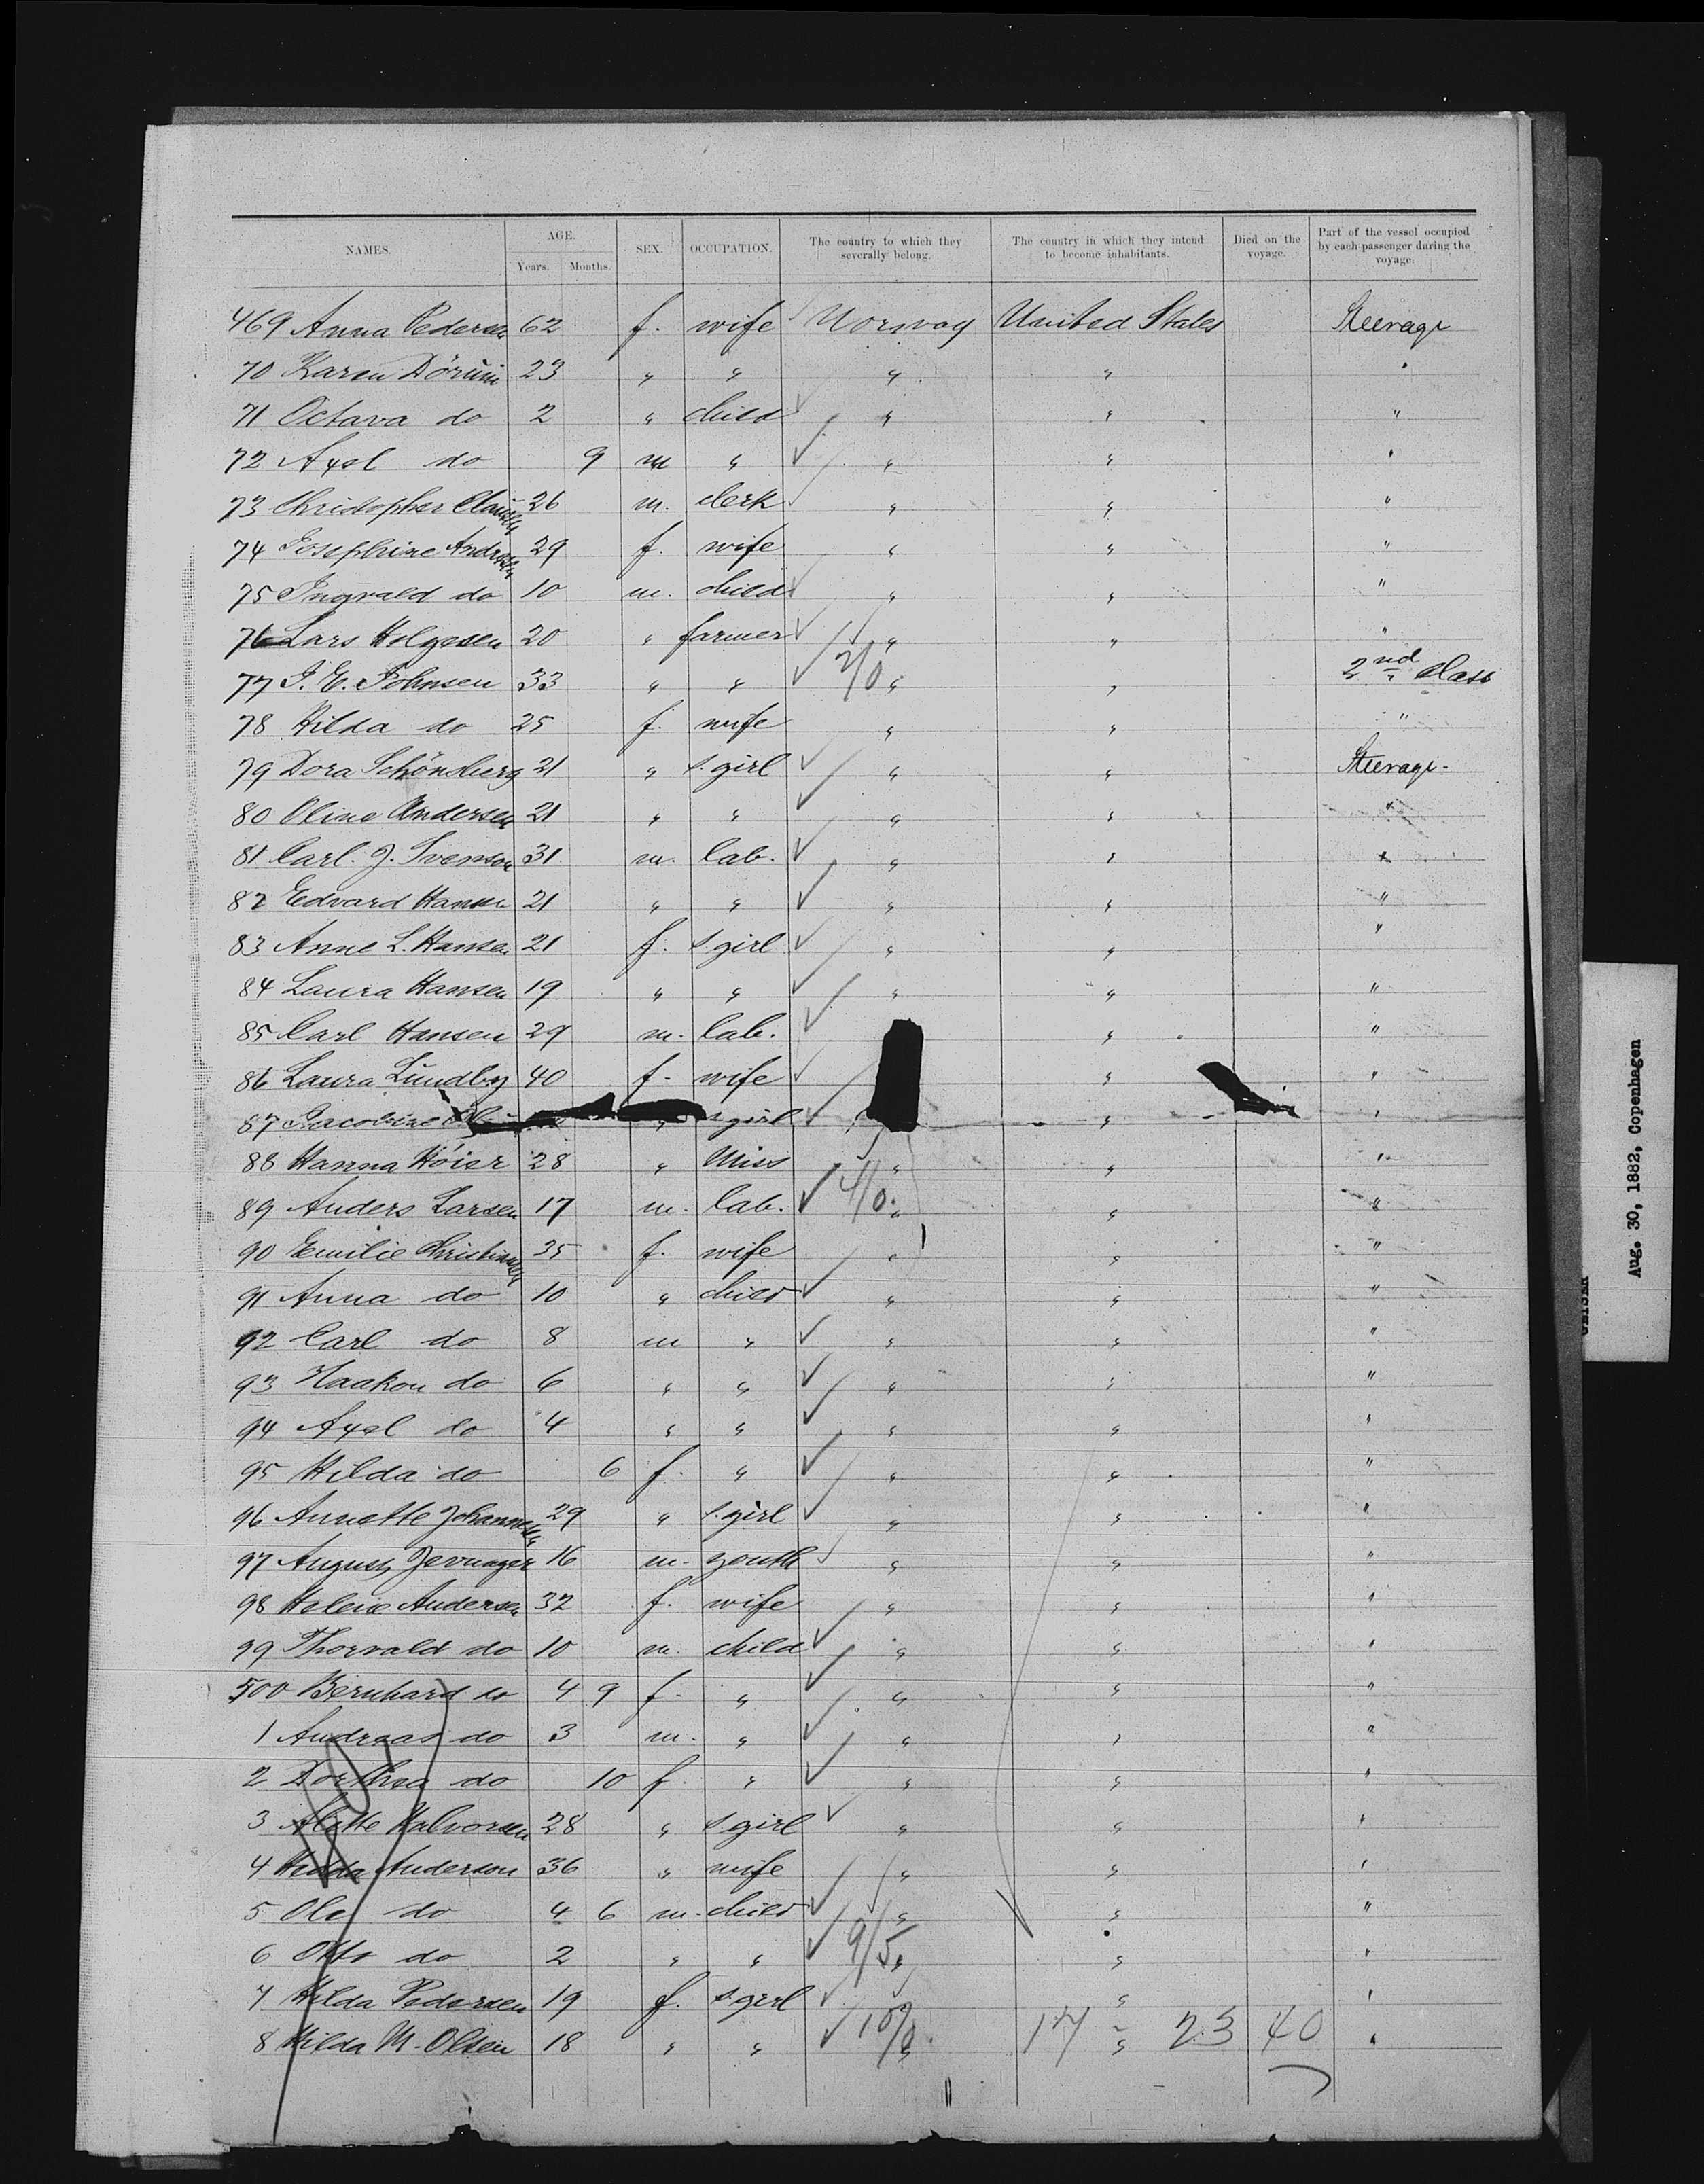 NAMES. AGE. Years. Months. SEX. OCCUPATION. The country to which they severally belong. The country in which they intend to become inhabitants. Died on the voyage. Part of the vessel occupied by each passenger during the voyage.
469 Anna Pedersen 62 f. wife Norway United States Steerage
70 Karen Dörüm 23 " " " " "
71 Octava do 2 " child " " "
72 Axel do 9 m " " " "
73 Christopher 26 m. clerk " " "
74 Josephine Andresen 29 f. wife " " "
75 Ingvald do 10 m. child " " "
76 Lars Helgesen 20 " farmer " " "
77 J. E. Johnsen 33 " " 2/0 " " 2nd Class
78 Hilda do 25 f. wife " " "
79 Dora Schönsberg 21 " s. girl " " Steerage
80 Oline Andersen 21 " " " " "
81 Carl. J. Svenson 31 m. lab. " " "
82 Edvard Hansen 21 " " " " "
83 Anne L. Hansen 21 f. s. girl " " "
84 Laura Hansen 19 " " " " "
85 Carl Hansen 29 m. lab. " "
86 Laura Lündby 40 f. wife " "
87 Jacobine " s girl " "
88 Hanna Höier 28 " Miss " " "
89 Anders Larsen 17 m. lab. 4/0 " " "
90 Emilie Christiansen 35 f. wife " " "
91 Anna do 10 " child " " "
92 Carl do 8 m " " " "
93 Haakon do 6 " " " " "
94 Axel do 4 " " " " "
95 Hilda do 6 f. " " " "
96 Annette Johannesen 29 " s. girl " " "
97 August 16 m. youth " " "
98 Helene Andersen 32 f. wife " " "
99 Thorvald do 10 m. child " " "
500 Bernhard do 4 9 f. " " " "
1 Andreas do 3 m. " " " "
2 Dorthea do 10 f. " " " "
3 Alette Halvorsen 28 " s girl " " "
4 Hilda Anderson 36 " wife " " "
5 Ole do 4 6 m. child " " "
6 Otto do 2 " " 9/5 " " "
7 Hilda Pedersen 19 f. s. girl " " "
8 Hilda M. Olsen 18 " " 10/0 " 17 " 23 40 "
Aug. 30, 1882, Copenhagen